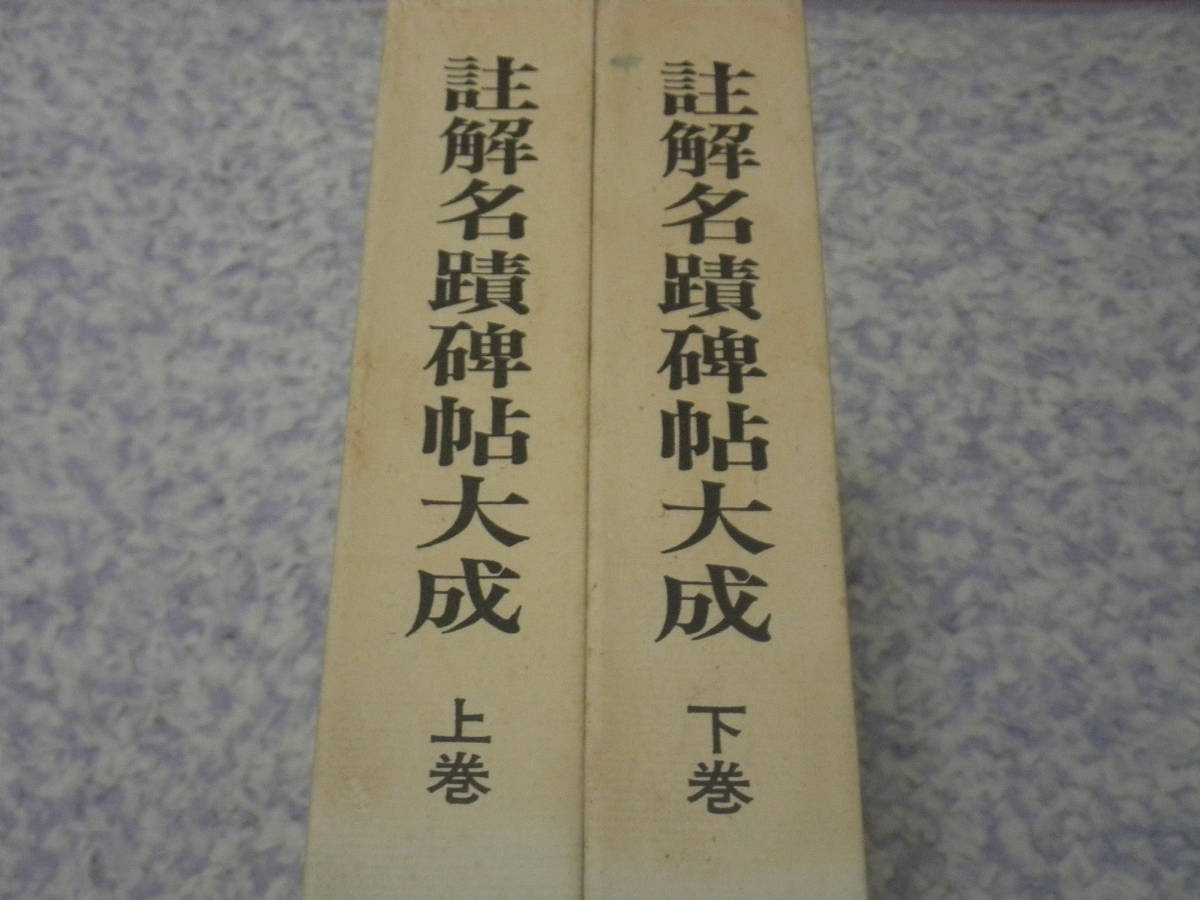 註解名蹟碑帖大成
上巻
註解名蹟碑帖大成
下巻